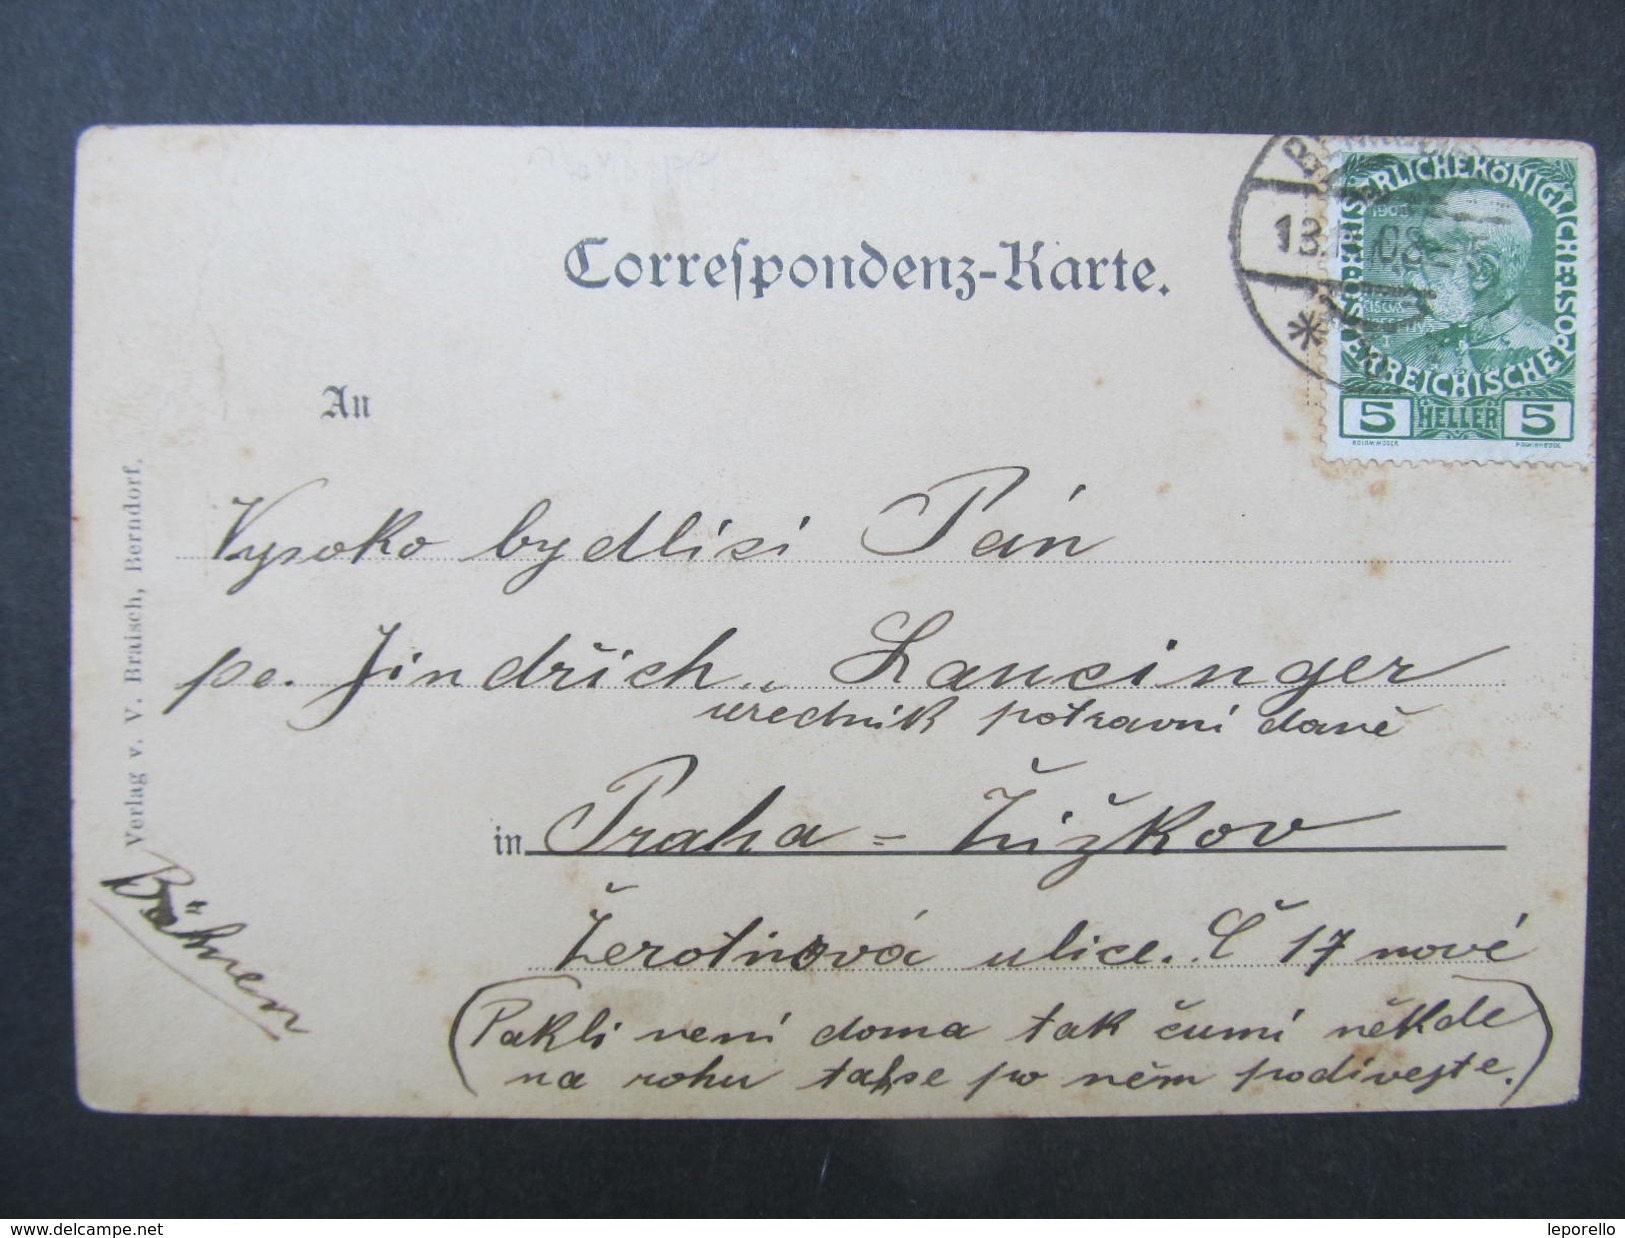 Correspondenz-Karte.
18.1 08
KAISERLICHE KÖNIGLICHE ÖSTERREICHISCHE POST
1908
5 HELLER 5
An
Vysoko bydlící Pán
pe. Jindřich Laucinger
uredník potravní daně
in Praha = Žižkov
Žerotinová ulice. Č 17 nové
(Pakli není doma tak čumí někde
na rohu tak se po něm podívejte.)
Verlag v. V. Braisch, Berndorf.
Böhmen
www.delcampe.net
leporello